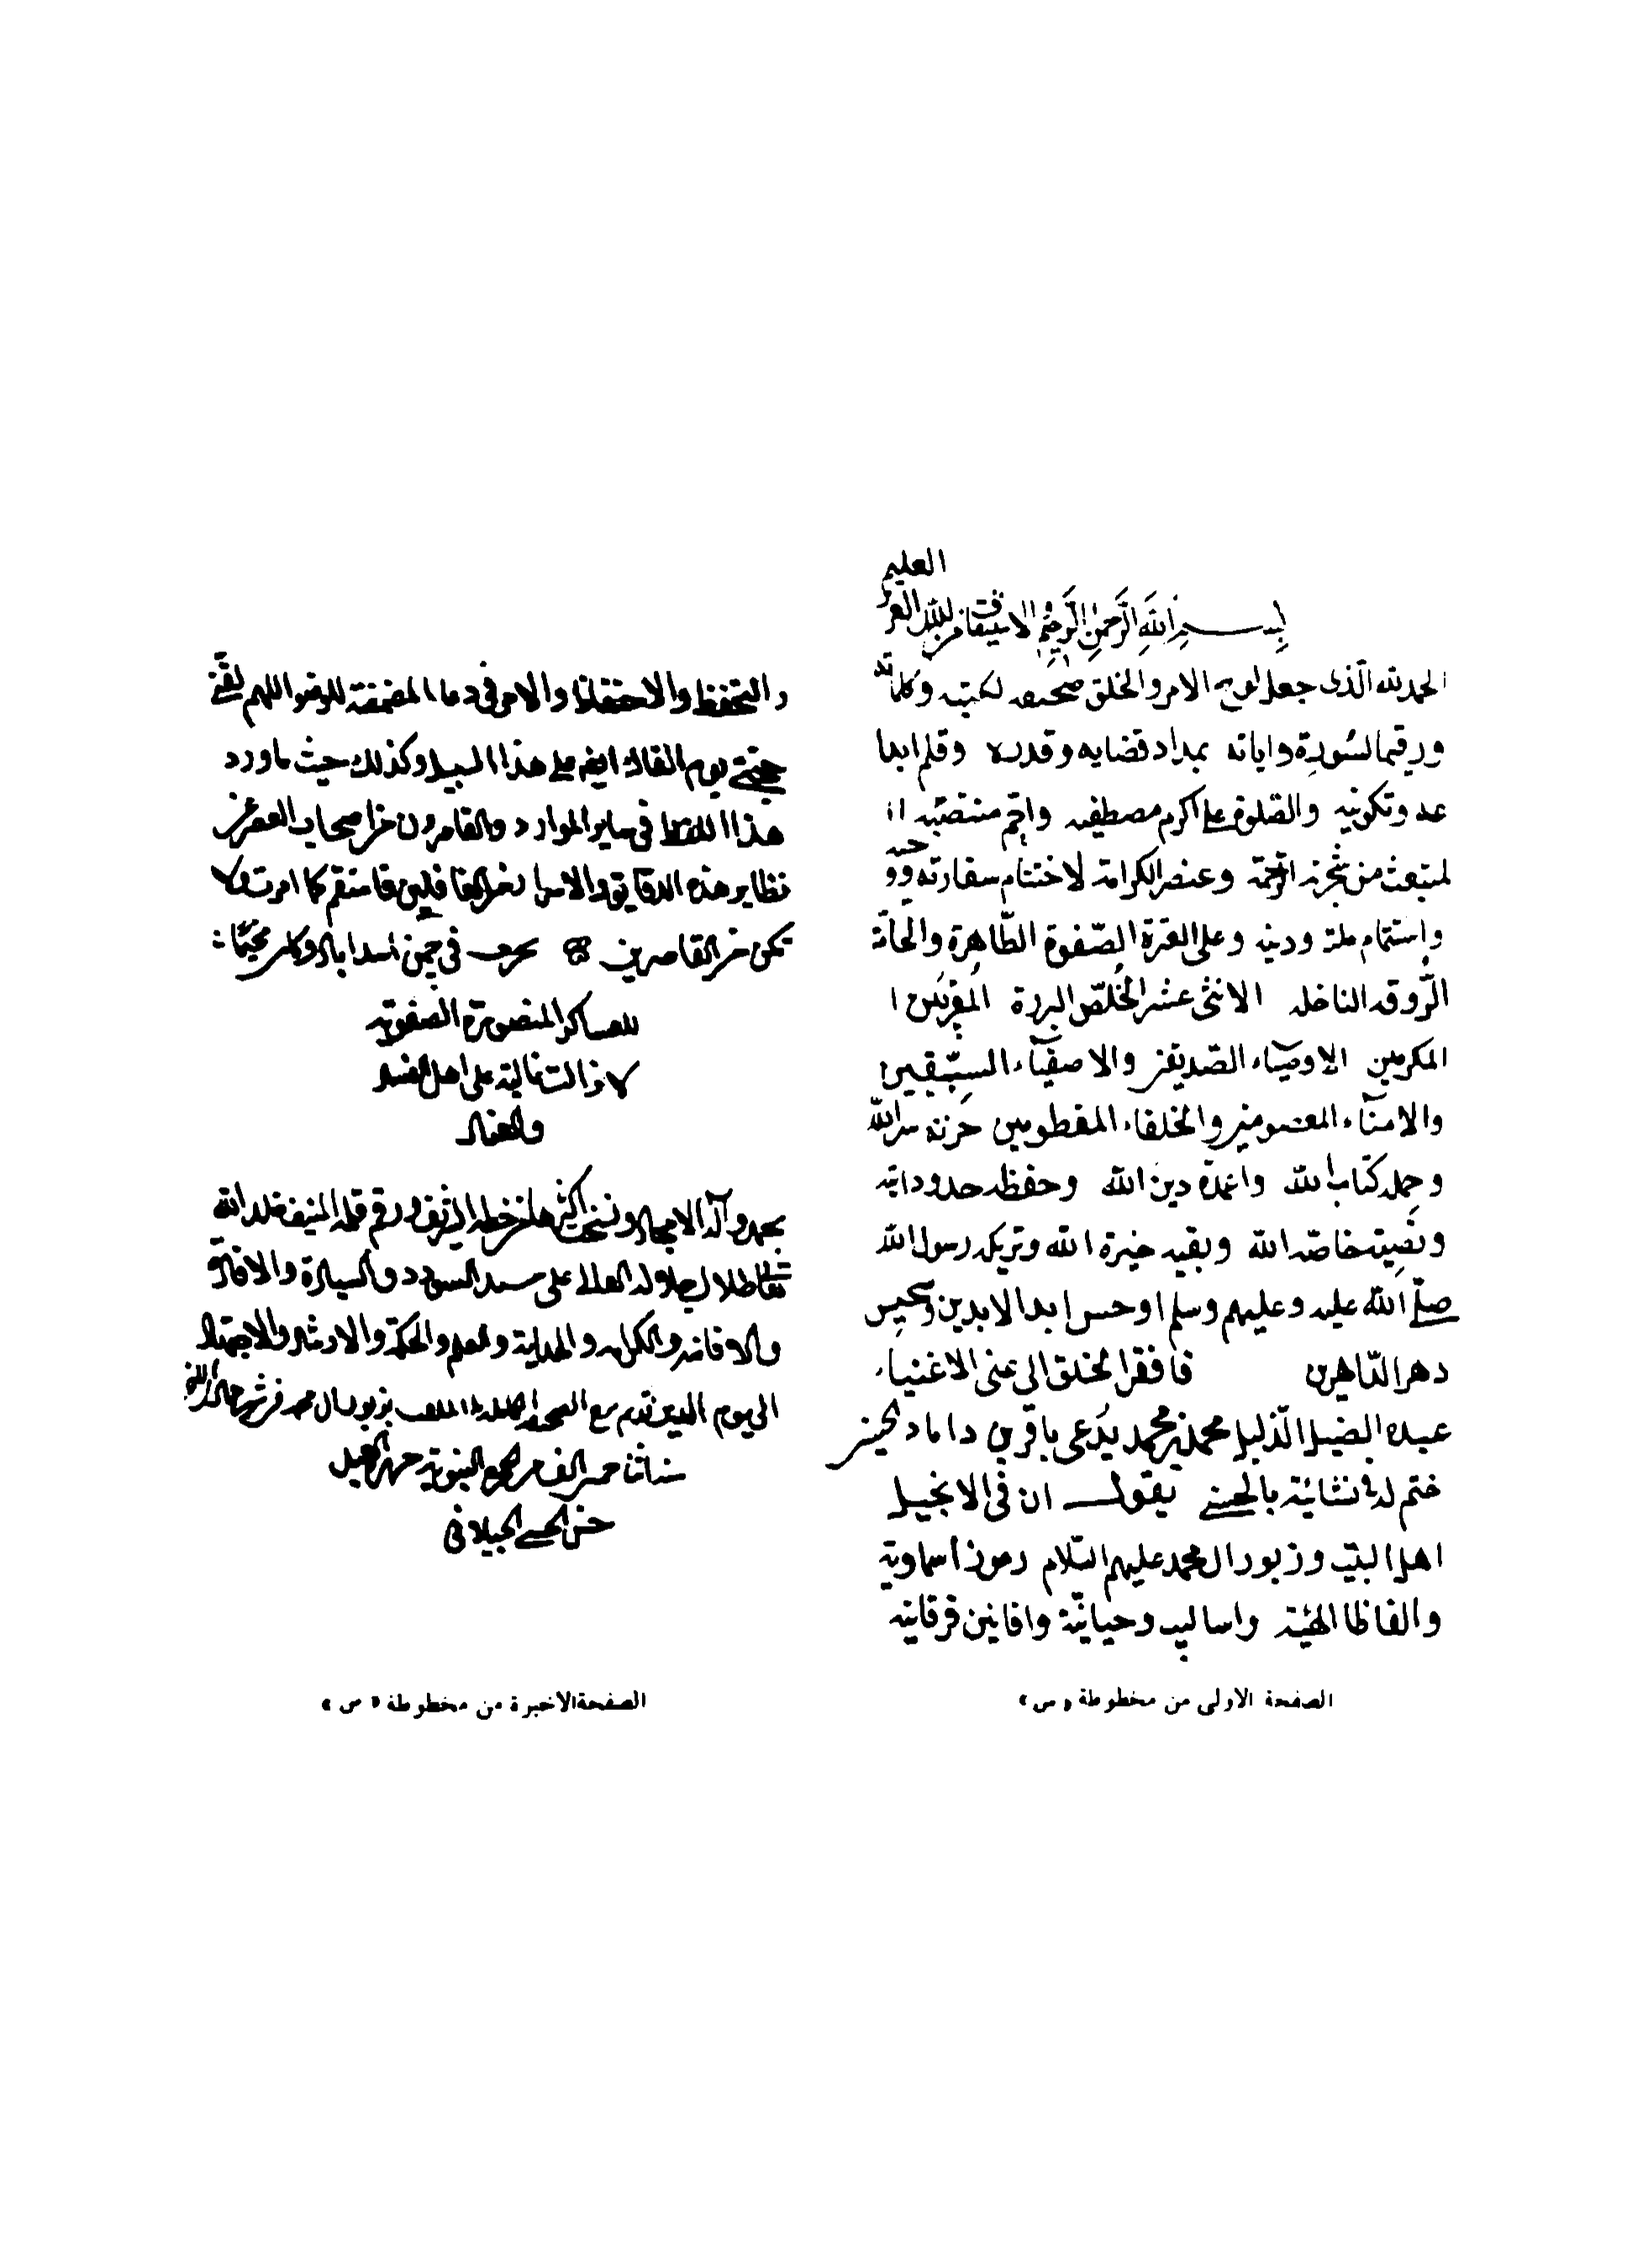 العليم
بسم الله الرحمن الرحيم الاستيفاق من الله العزيز
الحمد لله الذى جعل لوح الامر والخلق صحيفه لكتبه وكلماته
ورقيما لسوره واياته بمداد قضايه وقدره وقلم ابدا
عه وتكوينه والصلوة على اكرم مصطفيه واتم منتضيه ا
لمبتعث من شجرة الرحمة وعنصر الكرامة لاختتام سفارته و وحيه
واستتمام ملته ودينه وعلى العترة الصفوة الطاهرة والحامة
الروقه الناخله الاثنى عشر الخلص البررة المقربين ا
المكرمين الاوصياء الصديقين والاصفياء السبقين
والامناء المعصومين والخلفاء المفطومين خزنة سر الله
وحملة كتاب الله واعمدة دين الله وحفظه حدود اية
ونصية خاصة الله وبقيه خيرة الله وتريكه رسول الله
صلى الله عليه وعليهم وسلم ابد الابدين
دهر الداهرين فافقر الخلق الى غنى الاغنياء
عبيده الضئيل الذليل محمد بن محمد يدعى باقر بن داماد الحسينى
ختم له فى نشائيته بالحسنى يقول ان فى الانجيل
اهل البيت وزبور ال محمد عليهم السلام رموزا سماوية
والفاظا الهية واساليب وحيانية وافانين فرقانيه
الصفحة الاولى من مخطوطة « س »
والتحفظ والاحتفاظ والامر فى دعاء المضمضة للوضوء اللهم لقنى
حجتى يوم القاك ايضا على هذا السبيل وكذلك حيث ما ورد
هذا اللفظ فى ساير الموارد والقاصرون من اصحاب العصر عن
نظاير هذه الدقايق والاسرار لمن الغافلين فاستقم كما امرت ولا
تكن من القاصرين فى چمن اسداباد وكان مخيما
للعساكر المنصورة الصفوية
لا زالت غالية على اهل
والضلال
بمحمد وآله الامجاد من خطه الشريف ورقم قلمه المنيف خلد الله
تعالى ظلال جلاله العالى على مسند السودد والسيادة والافادة
والافاضة والكرامة والهداية والعلم والحكمة والارشاد والاجتهاد
الى يوم الدين الملقب بزبور ال محمد
سنة الف من الهجرة النبوية
الحسنى الجيلانى
الصفحة الاخيرة من مخطوطة « س »